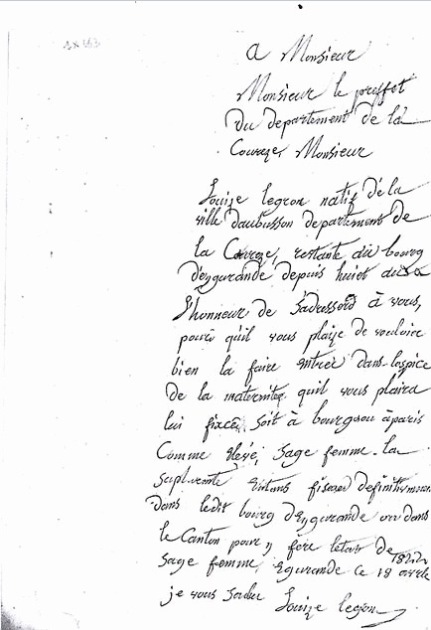 a Monsieur
Monsieur le preffet
du departement de la
Coureze, Monsieur
Louize legron natif de la
ville daubusson departement de
la Coureze, restante au bourg
d'eygurande depuis huiet
l'honneur de s'adressord à vous,
pour quil vous plaize de vouloire
bien la faire entree dans lospice
de la maternitee quil vous plaira
lui fixce, soit à bourgaou àparis
Comme elevé, sage femme. la
supliante fixser definitivment
dans ledit bourg d'Eygurande ou dans
le Canton pour y fère letat de
sage femme, Egurande ce 18 avrile 1822
je vous salue Louize legron